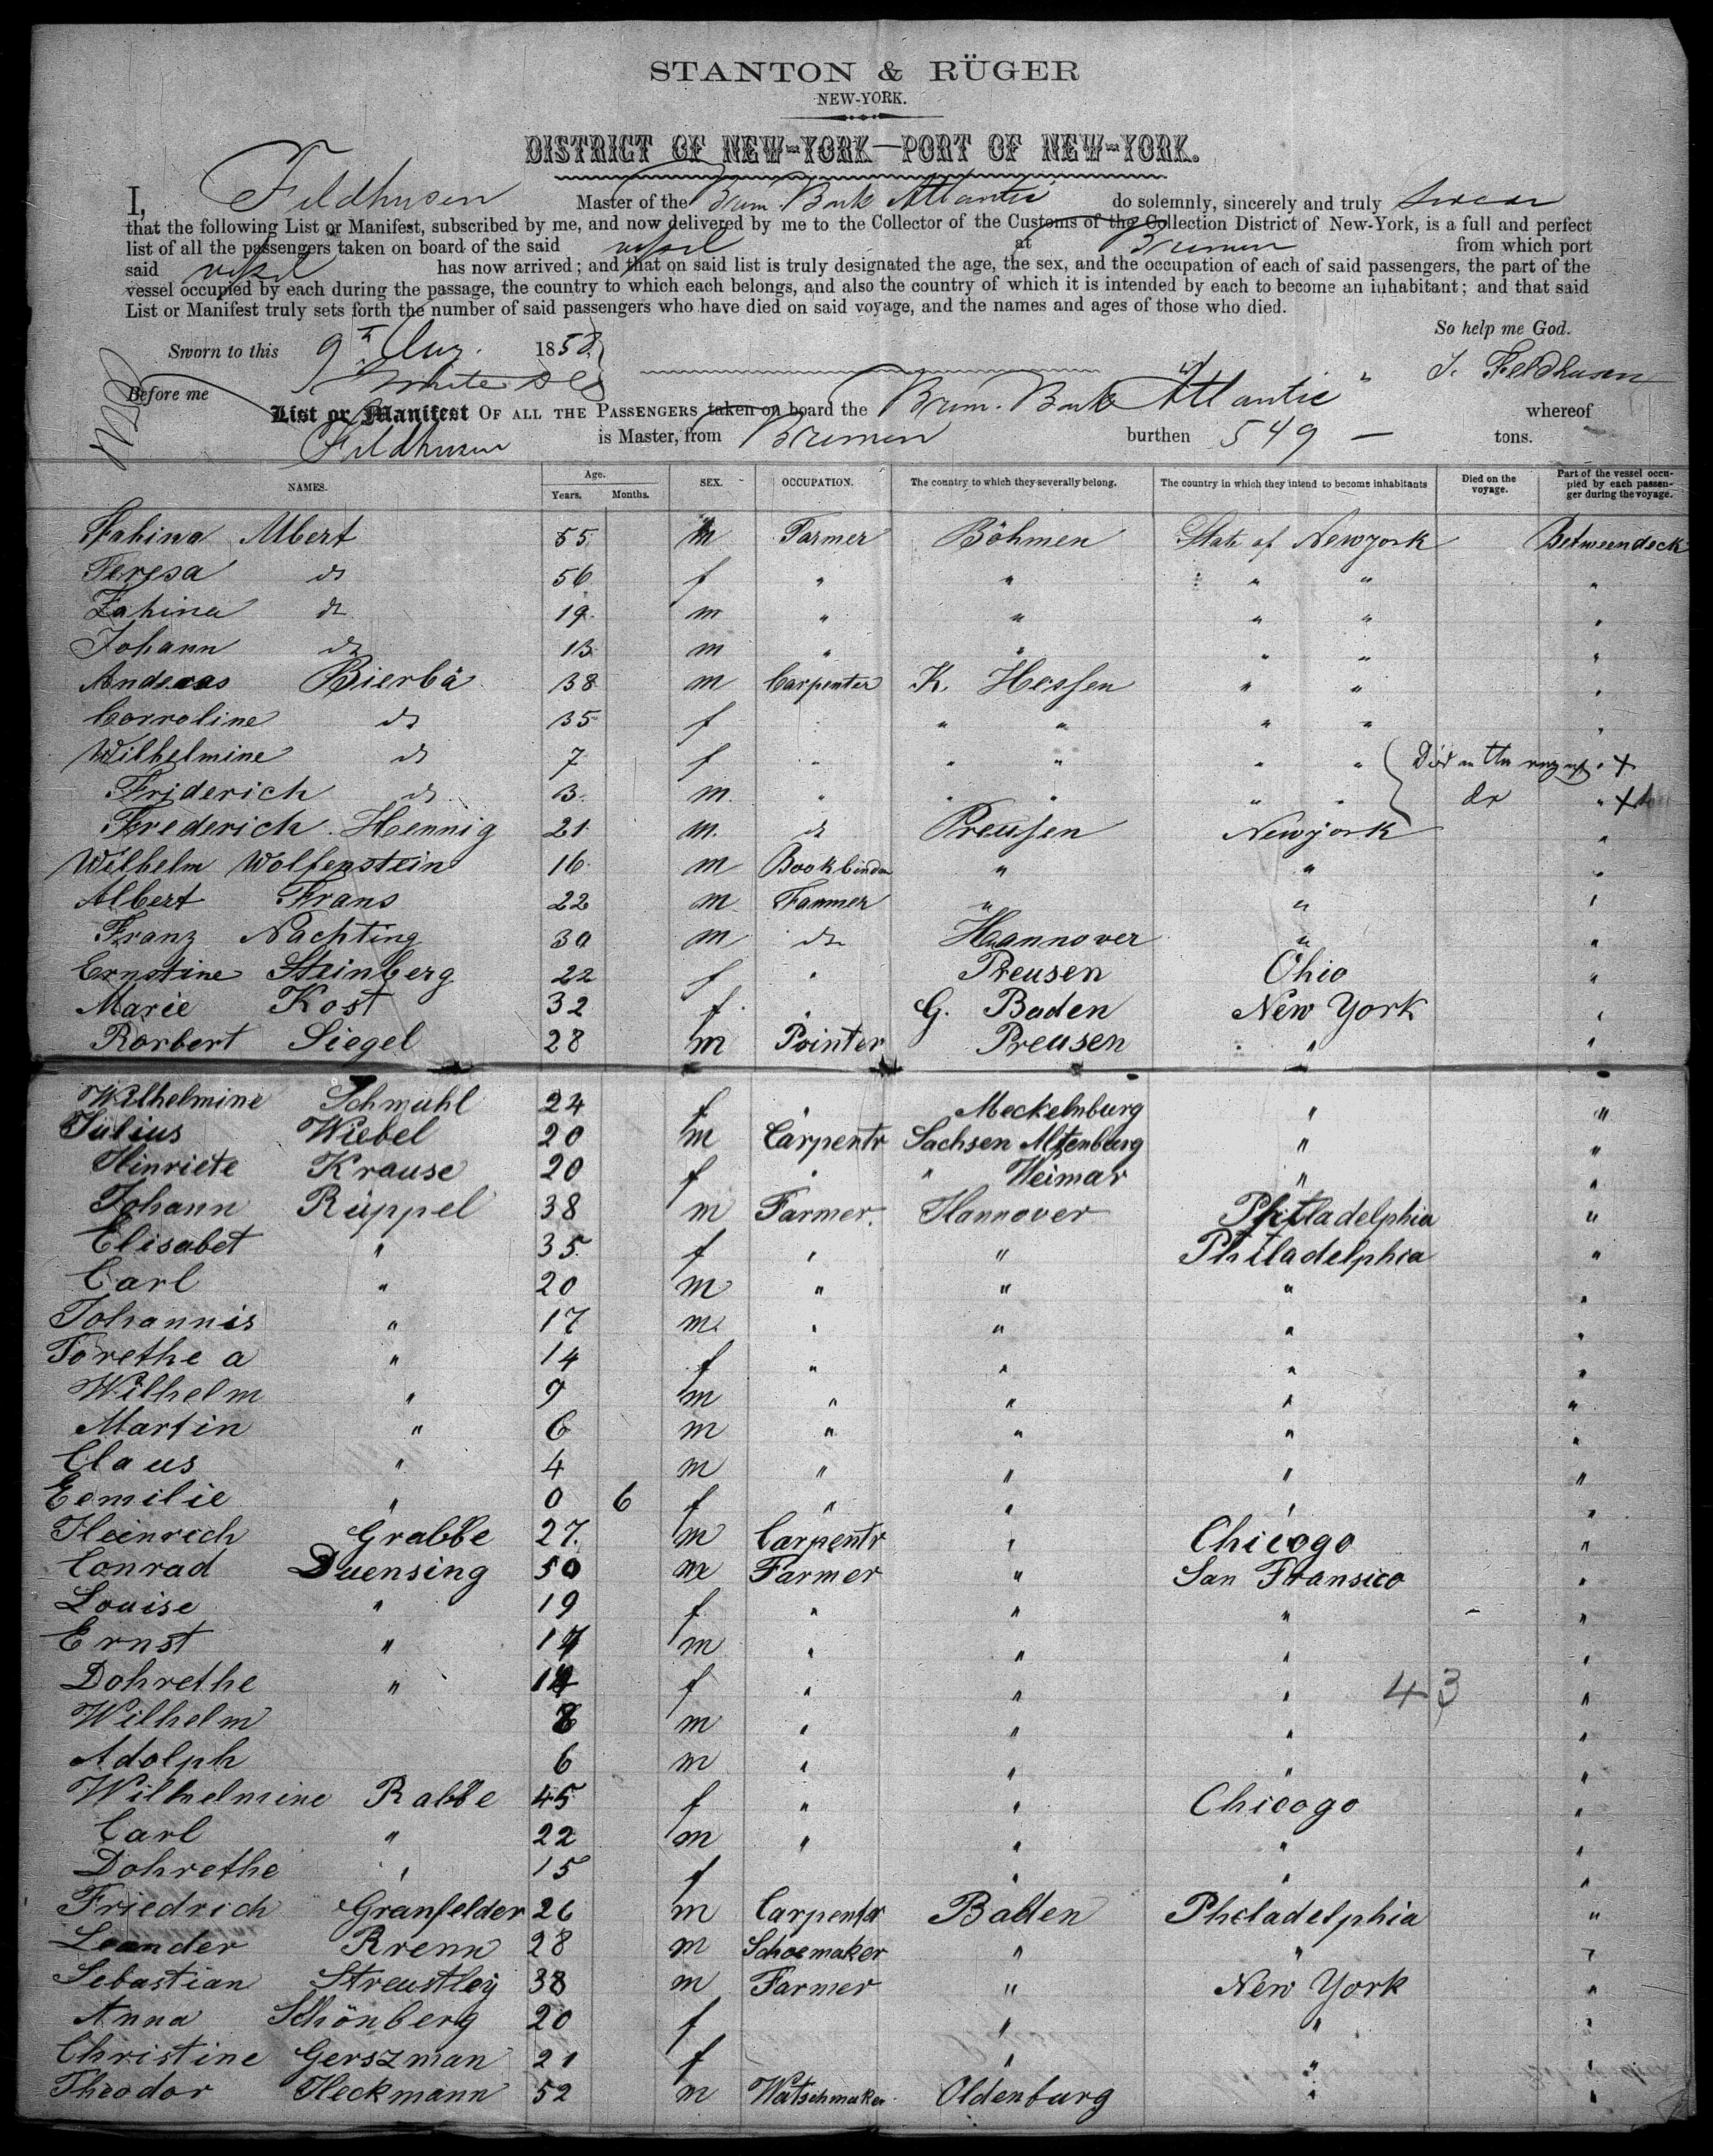 STANTON & RÜGER
NEW-YORK.
DISTRICT OF NEW-YORK—PORT OF NEW-YORK.
I, Feldhusen Master of the Brem. Bark Atlantic do solemnly, sincerely and truly swear
that the following List or Manifest, subscribed by me, and now delivered by me to the Collector of the Customs of the Collection District of New-York, is a full and perfect
list of all the passengers taken on board of the said vessel at Bremen from which port
said vessel has now arrived; and that on said list is truly designated the age, the sex, and the occupation of each of said passengers, the part of the
vessel occupied by each during the passage, the country to which each belongs, and also the country of which it is intended by each to become an inhabitant; and that said
List or Manifest truly sets forth the number of said passengers who have died on said voyage, and the names and ages of those who died.
So help me God.
Sworn to this 9th Aug. 1858
J. Feldhusen
Before me
List or Manifest OF ALL THE PASSENGERS taken on board the Brem. Bark Atlantic whereof
Feldhusen is Master, from Bremen burthen 549 — tons.
NAMES. Age. Years. Months. SEX. OCCUPATION. The country to which they severally belong. The country in which they intend to become inhabitants Died on the voyage. Part of the vessel occupied by each passenger during the voyage.
Fahina Albert 55 m Farmer Böhmen State of Newyork Betweendeck
Teresa do 56 f " " " " "
Fahina do 19 m " " " " "
Johann do 13 m " " " " "
Andreas Bierbä 38 m Carpenter K. Hessen " " "
Corroline do 35 f " " " " "
Wilhelmine do 7 f " " " " " Died on the voyage " +
Friderich do 3 m " " " " " do " +
Frederich Hennig 21 m. do Preusen Newyork "
Wilhelm Wolfenstein 16 m Bookbinder " " "
Albert Frans 22 m Farmer " " "
Franz Nachting 30 m do Hannover " "
Ernstine Steinberg 22 f " Preusen Ohio "
Marie Kost 32 f " G. Baden New York "
Rorbert Siegel 28 m Pointer Preusen " "
Wilhelmine Schmuhl 24 f " Meckelnburg " "
Julius Wiebel 20 m Carpentr Sachsen Altenburg " "
Hinriete Krause 20 f " " Weimar " "
Johann Rüppel 38 m Farmer. Hannover Philadelphia "
Elisabet " 35 f " " Philadelphia "
Carl " 20 m " " " "
Johannis " 17 m. " " " "
Torethe a " 14 f " " " "
Wilhelm " 9 m " " " "
Martin " 6 m " " " "
Claus " 4 m " " " "
Eemilie " 0 6 f " " " "
Heinrich Grabbe 27. m Carpentr " Chicogo "
Conrad Duensing 50 m Farmer " San Fransico "
Louise " 19 f " " " "
Ernst " 17 m " " " "
Dohrethe " 14 f " " " 43 "
Wilhelm 8 m " " " "
Adolph 6 m " " " "
Wilhelmine Rabbe 45 f " " Chicogo "
Carl " 22 m " " " "
Dohrethe " 15 f " " "
Friedrich Granfelder 26 m Carpenter Baden Philadelphia "
Leander Rrenn 28 m Schoemaker " " "
Sebastian Streustley 38 m Farmer " New York "
Anna Schönberg 20 f " " "
Christine Gerszman 21 f " " "
Theodor Heckmann 52 m Watschmaker Oldenburg " "